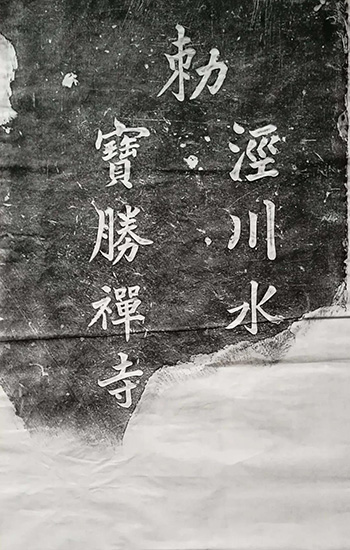 勅
涇川水
寶勝禪寺